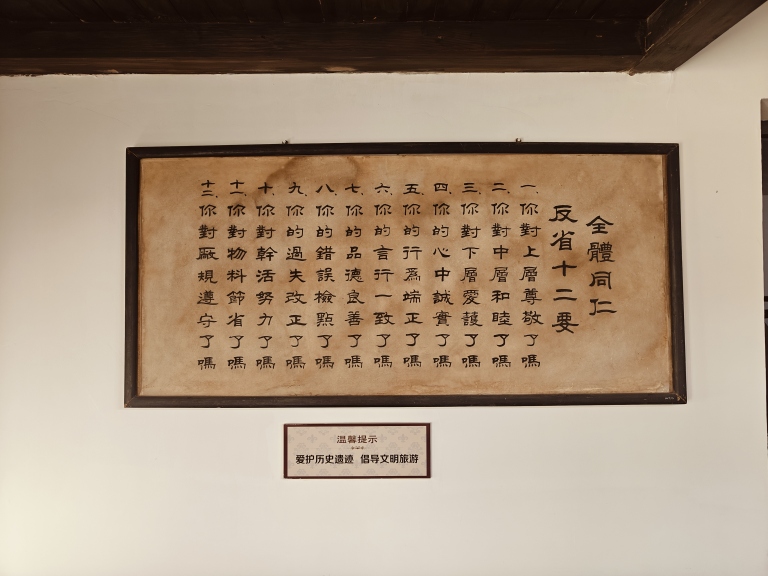 全體同仁
反省十二要
一、你對上層尊敬了嗎
二、你對中層和睦了嗎
三、你對下層愛護了嗎
四、你的心中誠實了嗎
五、你的行為端正了嗎
六、你的言行一致了嗎
七、你的品德良善了嗎
八、你的錯誤檢點了嗎
九、你的過失改正了嗎
十、你對幹活努力了嗎
十一、你對物料節省了嗎
十二、你對厰規遵守了嗎
温馨提示
爱护历史遗迹 倡导文明旅游